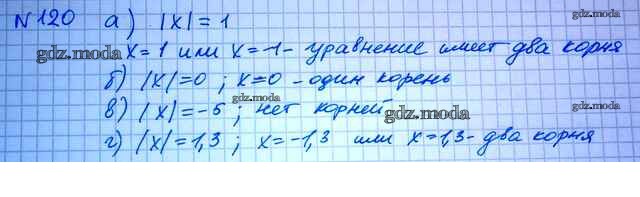 №120 а) |x| = 1
gdz.moda x=1 или x=-1 - уравнение имеет два корня
gdz.moda
б) |x|=0 ; x=0 - один корень
gdz.moda gdz.moda
в) |x|=-5 ; нет корней
gdz.moda
г) |x|=1,3 ; x=-1,3 или x=1,3 - два корня
gdz.moda